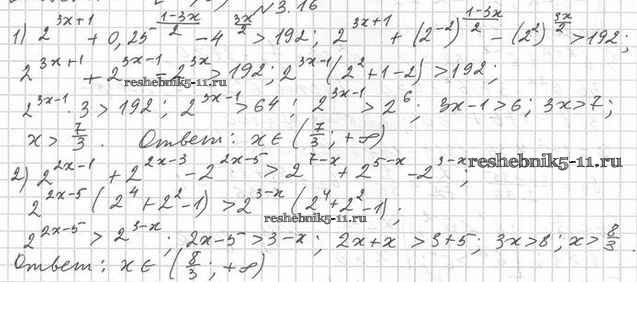 №3.16
1) 2^{3x+1} + 0,25^{\frac{1-3x}{2}} - 4^{\frac{3x}{2}} > 192; 2^{3x+1} + (2^{-2})^{\frac{1-3x}{2}} - (2^2)^{\frac{3x}{2}} > 192;
2^{3x+1} + 2^{3x-1} - 2^{3x} > 192; 2^{3x-1}(2^2+1-2) > 192;
reshebnik5-11.ru
2^{3x-1} · 3 > 192; 2^{3x-1} > 64; 2^{3x-1} > 2^6; 3x-1 > 6; 3x > 7;
x > \frac{7}{3}. Ответ: x ∈ (\frac{7}{3}; +∞)
reshebnik5-11.ru
2) 2^{2x-1} + 2^{2x-3} - 2^{2x-5} > 2^{7-x} + 2^{5-x} - 2^{3-x};
2^{2x-5}(2^4+2^2-1) > 2^{3-x}(2^4+2^2-1);
reshebnik5-11.ru
2^{2x-5} > 2^{3-x}; 2x-5 > 3-x; 2x+x > 3+5; 3x > 8; x > \frac{8}{3}.
Ответ: x ∈ (\frac{8}{3}; +∞)